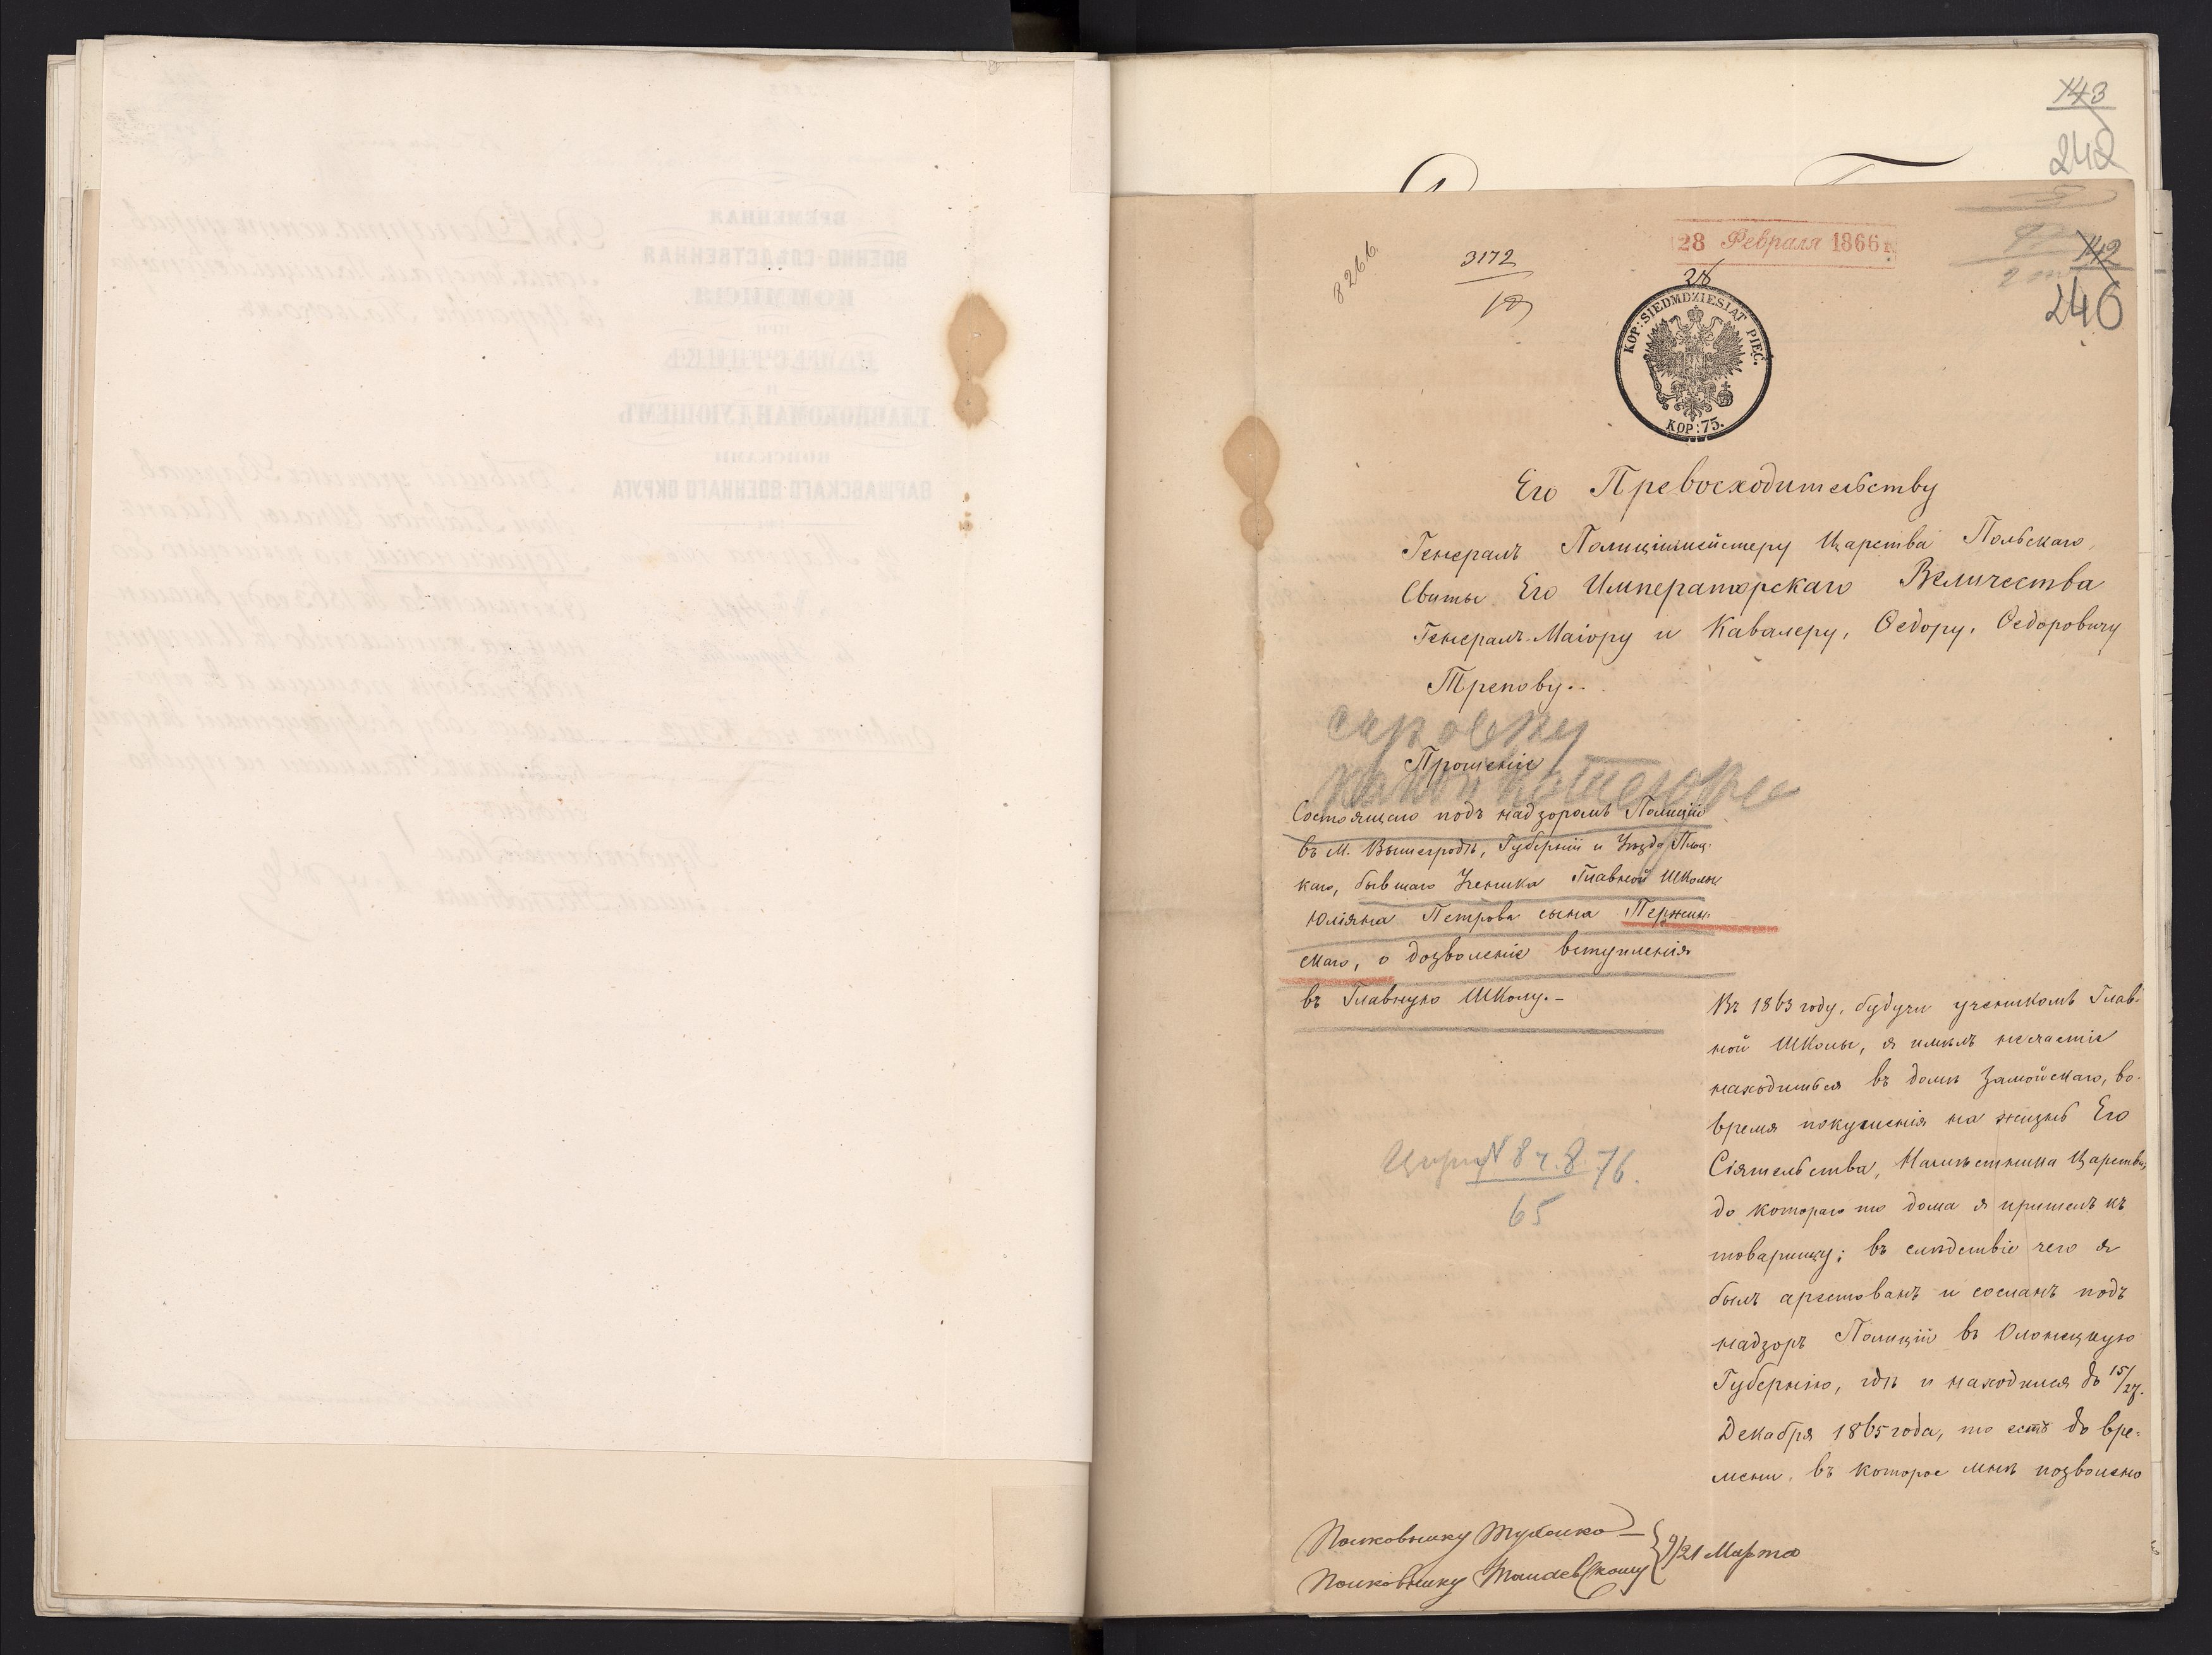 143
242
142
246
8266
3172
19
28 Февраля 1866 г.
28
KOP: SIEDMDZIESIAT PIĘĆ.
KOP: 75.
Его Превосходительству
Генералъ Полиціймейстеру Царства Польскаго,
Свиты Его Императорскаго Величества
Генералъ-Маіору и Кавалеру, Ѳедору Ѳедоровичу
Трепову.
справку
Прошеніе
какой категоріи
Состоящаго подъ надзоромъ Полиціи
въ М. Вышегродѣ, Губерніи и Уѣзда Плоц-
каго, бывшаго Ученика Главной Школы
Юліяна Петрова сына Пержин-
скаго, о дозволеніе вступленія
въ Главную Школу.-
Въ 1863 году, будучи ученикомъ Глав-
ной Школы, я имѣлъ несчастіе
находиться въ домѣ Замойскаго, во-
время покушенія на жизнь Его
Сіятельства, Намѣстника Царства,
до котораго то дома я пришелъ къ
товарищу; въ слѣдствіе чего я
былъ арестованъ и сосланъ подъ
надзоръ Полиціи въ Олонецкую
Губернію, гдѣ и находился до 15/27.
Декабря 1865 года, то есть до вре-
мени, въ которое мнѣ позволено
65
Полковнику Тухолко
Полковнику
9/21 Марта